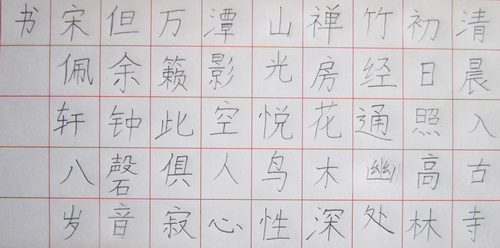 清晨入古寺
初日照高林
竹经通幽处
禅房花木深
山光悦鸟性
潭影空人心
万籁此俱寂
但余钟磬音
宋佩轩八岁
书